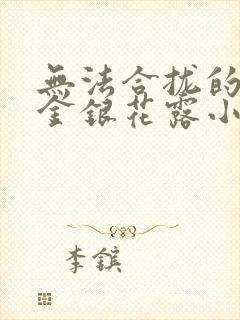 無法合拢的
金銀花露小
李